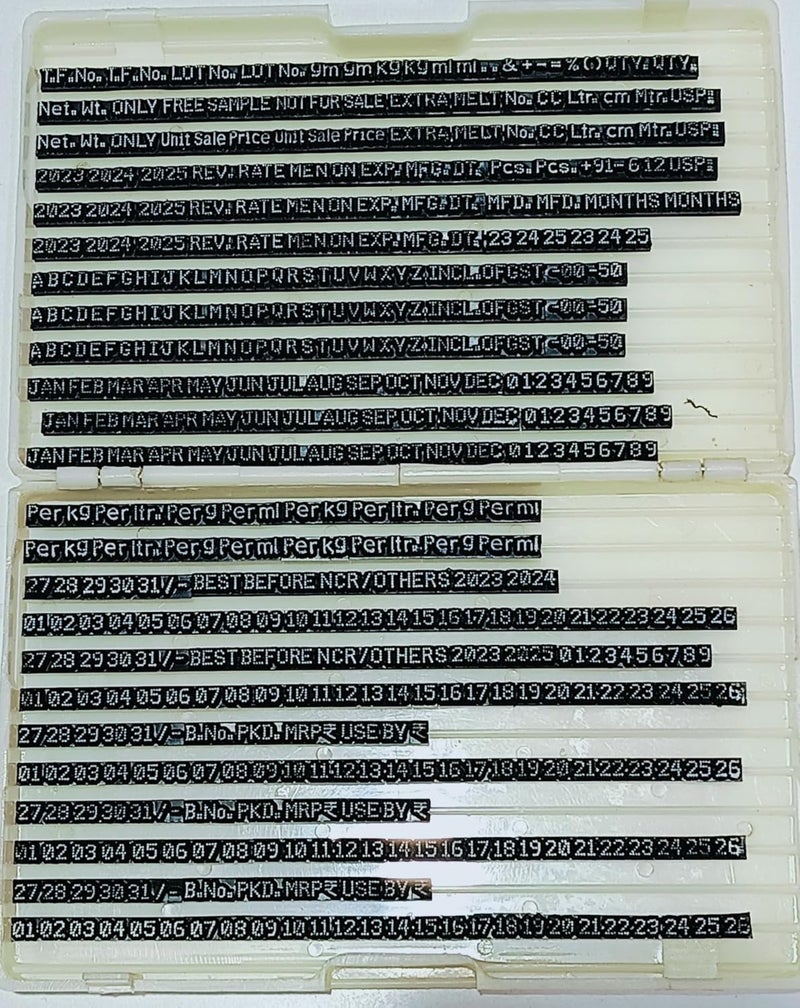 T.F.No. T.F.No. LOT No. LOT No. gm gm Kg Kg ml ml . . & + - = % () QTY. QTY.
Net. Wt. ONLY FREE SAMPLE NOT FOR SALE EXTRA MELT No. CC Ltr. cm Mtr. USP:
Net. Wt. ONLY Unit Sale Price Unit Sale Price EXTRA MELT No. CC Ltr. cm Mtr. USP:
2023 2024 2025 REV. RATE MEN ON EXP. MFG. DT. Pcs. Pcs. +91-6 12 USP:
2023 2024 2025 REV. RATE MEN ON EXP. MFG. DT. MFD. MFD. MONTHS MONTHS
2023 2024 2025 REV. RATE MEN ON EXP. MFG. DT. 23 24 25 23 24 25
A B C D E F G H I J K L M N O P Q R S T U V W X Y Z INCL. OF GST <00-50
A B C D E F G H I J K L M N O P Q R S T U V W X Y Z INCL. OF GST <00-50
A B C D E F G H I J K L M N O P Q R S T U V W X Y Z INCL. OF GST <00-50
JAN FEB MAR APR MAY JUN JUL AUG SEP OCT NOV DEC 0 1 2 3 4 5 6 7 8 9
JAN FEB MAR APR MAY JUN JUL AUG SEP OCT NOV DEC 0 1 2 3 4 5 6 7 8 9
JAN FEB MAR APR MAY JUN JUL AUG SEP OCT NOV DEC 0 1 2 3 4 5 6 7 8 9
Per kg Per ltr. Per g Per ml Per kg Per ltr. Per g Per ml
Per kg Per ltr. Per g Per ml Per kg Per ltr. Per g Per ml
27 28 29 30 31 / - BEST BEFORE NCR/OTHERS 2023 2024
01 02 03 04 05 06 07 08 09 10 11 12 13 14 15 16 17 18 19 20 21 22 23 24 25 26
27 28 29 30 31 / - BEST BEFORE NCR/OTHERS 2023 2025 0 1 2 3 4 5 6 7 8 9
01 02 03 04 05 06 07 08 09 10 11 12 13 14 15 16 17 18 19 20 21 22 23 24 25 26
27 28 29 30 31 / - B.No. PKD. MRP ₹ USE BY ₹
01 02 03 04 05 06 07 08 09 10 11 12 13 14 15 16 17 18 19 20 21 22 23 24 25 26
27 28 29 30 31 / - B.No. PKD. MRP ₹ USE BY ₹
01 02 03 04 05 06 07 08 09 10 11 12 13 14 15 16 17 18 19 20 21 22 23 24 25 26
27 28 29 30 31 / - B.No. PKD. MRP ₹ USE BY ₹
01 02 03 04 05 06 07 08 09 10 11 12 13 14 15 16 17 18 19 20 21 22 23 24 25 26